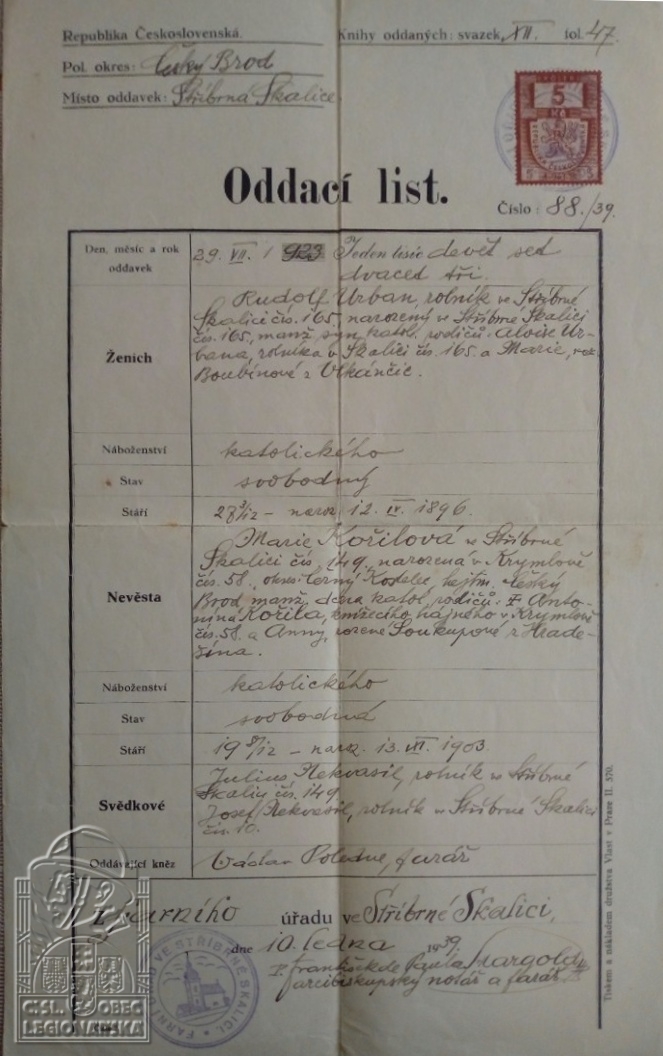 Republika Československá.
Knihy oddaných: svazek VII. fol. 47.
Pol. okres: Český Brod
Místo oddavek: Stříbrná Skalice.
5
Kč
Oddací list.
Číslo: 88./39.
Den, měsíc a rok
oddavek
29. VII. 1923 Jeden tisíc devět set
dvacet tři.
Ženich
Rudolf Urban, rolník ve Stříbrné
Skalici čís. 165, narozený ve Stříbrné Skalici
čís. 165, manž. syn katol. rodičů: Aloise Ur-
bana, rolníka v Skalici čís. 165 a Marie, roz.
Boubínové z Vlkančic.
Náboženství
katolického
Stav
svobodný
Stáří
naroz. 12. IV. 1896.
Nevěsta
Marie Kořilová ve Stříbrné
Skalici čís. 149, narozená v Krymlově
čís. 58, okres Černý Kostelec, hejtm. Český
Brod, manž. dcera katol. rodičů: Anto-
nína Kořila, knížecího hajného v Krymlově
čís. 58. a Anny, rozené Soukupové z Hrade-
šína.
Náboženství
katolického
Stav
svobodná
Stáří
naroz. 13. 1903.
Svědkové
Julius Nekvasil, rolník ve Stříbrné
Skalici čís. 149.
Josef Nekvasil, rolník v Stříbrné Skalici
čís. 10.
Oddávající kněz
Václav Poledne, farář
farního úřadu ve Stříbrné Skalici,
dne 10. ledna 1939.
P. František de Paula Margold
arcibiskupský notář a farář
FARNÍ ÚŘAD VE STŘÍBRNÉ SKALICI.
Tiskem a nákladem družstva Vlast v Praze II. 570.
ČSL. OBEC
LEGIONÁŘSKÁ